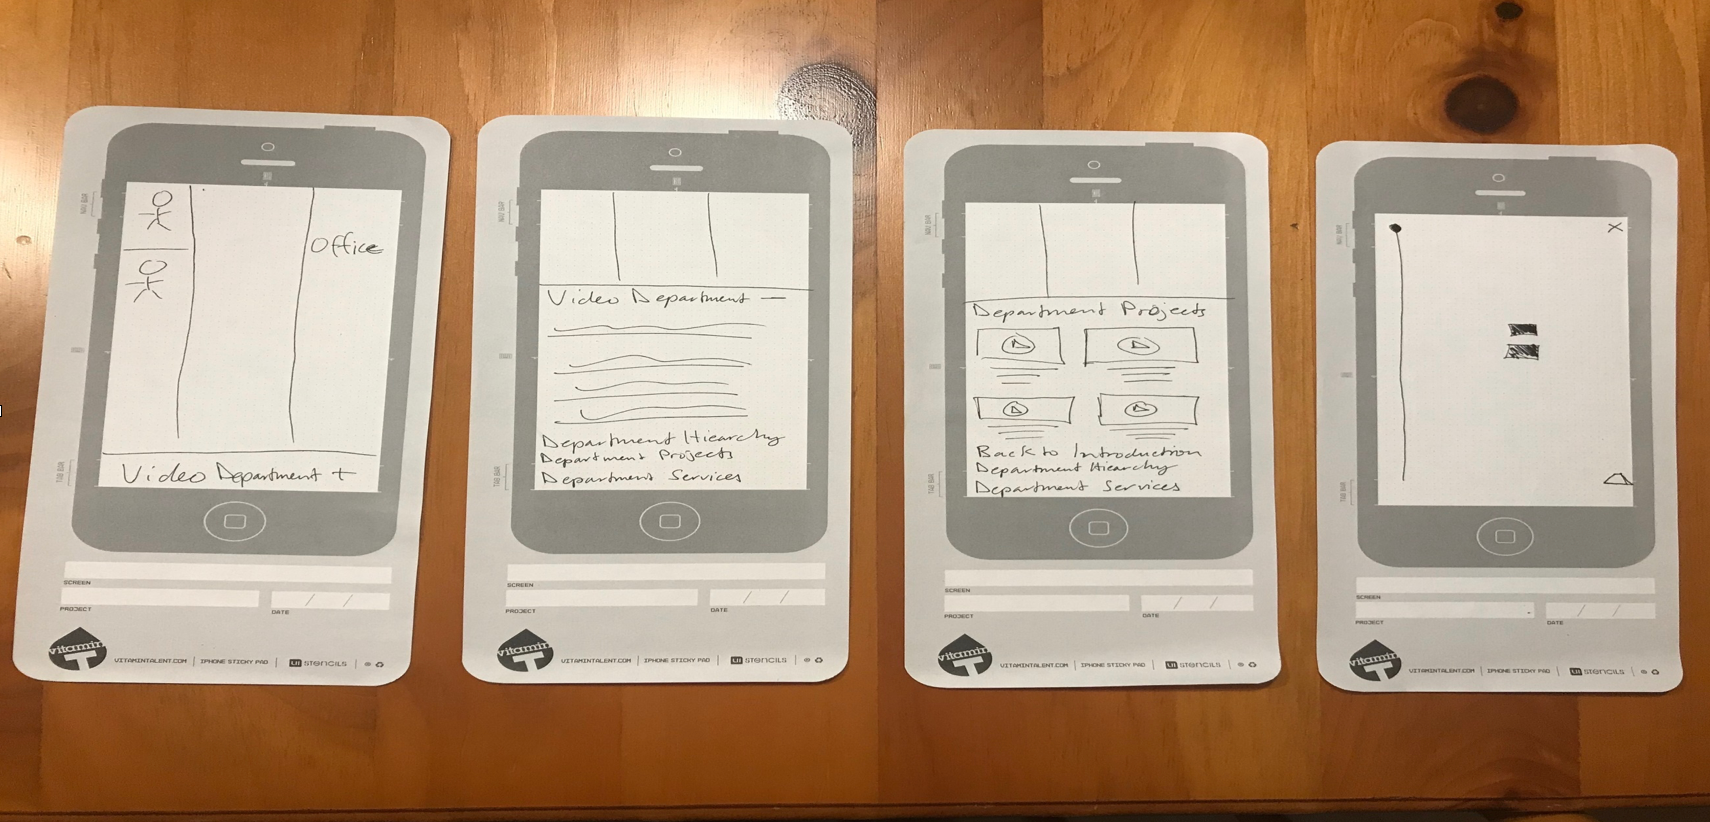 NAV BAR
TAB BAR
Office
Video Department +
SCREEN
PROJECT
DATE
/ /
vitamin
T
VITAMINTALENT.COM | IPHONE STICKY PAD | UI STENCILS
NAV BAR
TAB BAR
Video Department —
Department Hiearchy
Department Projects
Department Services
SCREEN
PROJECT
DATE
/ /
vitamin
T
VITAMINTALENT.COM | IPHONE STICKY PAD | UI STENCILS
NAV BAR
TAB BAR
Department Projects
Back to Introduction
Department Hiearchy
Department Services
SCREEN
PROJECT
DATE
/ /
vitamin
T
VITAMINTALENT.COM | IPHONE STICKY PAD | UI STENCILS
NAV BAR
TAB BAR
X
SCREEN
PROJECT
DATE
/ /
vitamin
T
VITAMINTALENT.COM | IPHONE STICKY PAD | UI STENCILS